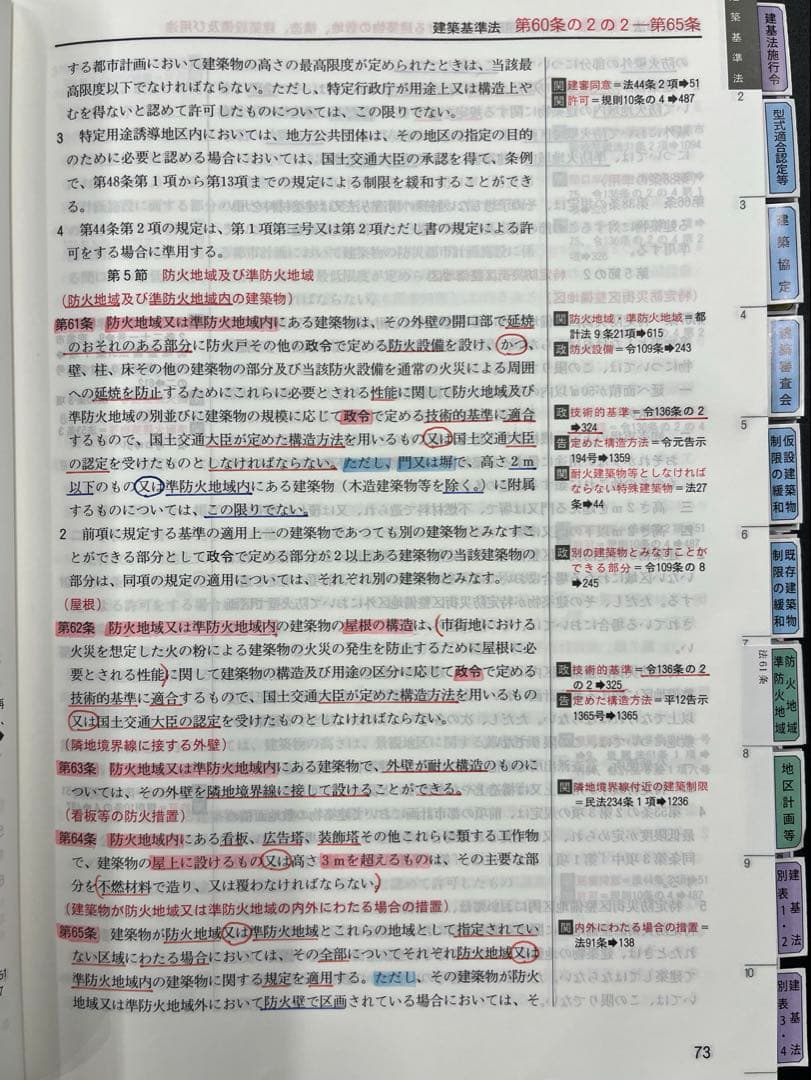 建築基準法　第60条の2の2―第65条
する都市計画において建築物の高さの最高限度が定められたときは、当該最
高限度以下でなければならない。ただし、特定行政庁が用途上又は構造上や
むを得ないと認めて許可したものについては、この限りでない。
3　特定用途誘導地区内においては、地方公共団体は、その地区の指定の目的
のために必要と認める場合においては、国土交通大臣の承認を得て、条例
で、第48条第1項から第13項までの規定による制限を緩和することができ
る。
4　第44条第2項の規定は、第1項第三号又は第2項ただし書の規定による許
可をする場合に準用する。
第5節　防火地域及び準防火地域
(防火地域及び準防火地域内の建築物)
第61条　防火地域又は準防火地域内にある建築物は、その外壁の開口部で延焼
のおそれのある部分に防火戸その他の政令で定める防火設備を設け、かつ、
壁、柱、床その他の建築物の部分及び当該防火設備を通常の火災による周囲
への延焼を防止するためにこれらに必要とされる性能に関して防火地域及び
準防火地域の別並びに建築物の規模に応じて政令で定める技術的基準に適合
するもので、国土交通大臣が定めた構造方法を用いるもの又は国土交通大臣
の認定を受けたものとしなければならない。ただし、門又は塀で、高さ2m
以下のもの又は準防火地域内にある建築物(木造建築物等を除く。)に附属
するものについては、この限りでない。
2　前項に規定する基準の適用上一の建築物であつても別の建築物とみなすこ
とができる部分として政令で定める部分が2以上ある建築物の当該建築物の
部分は、同項の規定の適用については、それぞれ別の建築物とみなす。
(屋根)
第62条　防火地域又は準防火地域内の建築物の屋根の構造は、市街地における
火災を想定した火の粉による建築物の火災の発生を防止するために屋根に必
要とされる性能に関して建築物の構造及び用途の区分に応じて政令で定める
技術的基準に適合するもので、国土交通大臣が定めた構造方法を用いるもの
又は国土交通大臣の認定を受けたものとしなければならない。
(隣地境界線に接する外壁)
第63条　防火地域又は準防火地域内にある建築物で、外壁が耐火構造のものに
ついては、その外壁を隣地境界線に接して設けることができる。
(看板等の防火措置)
第64条　防火地域内にある看板、広告塔、装飾塔その他これらに類する工作物
で、建築物の屋上に設けるもの又は高さ3mを超えるものは、その主要な部
分を不燃材料で造り、又は覆わなければならない。
(建築物が防火地域又は準防火地域の内外にわたる場合の措置)
第65条　建築物が防火地域又は準防火地域とこれらの地域として指定されてい
ない区域にわたる場合においては、その全部についてそれぞれ防火地域又は
準防火地域内の建築物に関する規定を適用する。ただし、その建築物が防火
地域又は準防火地域外において防火壁で区画されている場合においては、そ
関 建審同意=法44条2項➡51
関 許可=規則10条の4➡487
関 防火地域・準防火地域=都
計法9条21項➡615
政 防火設備=令109条➡243
政 技術的基準=令136条の2
➡324
告 定めた構造方法=令元告示
194号➡1359
関 耐火建築物等としなければ
ならない特殊建築物=法27
条➡44
政 別の建築物とみなすことが
できる部分=令109条の8
➡245
政 技術的基準=令136条の2
の2➡325
告 定めた構造方法=平12告示
1365号➡1365
関 隣地境界線付近の建築制限
=民法234条1項➡1236
関 内外にわたる場合の措置=
法91条➡138
73
建築基準法
建基法施行令
2
型式適合認定等
3
建築協定
4
建築審査会
5
仮設建築物
制限の緩和
6
既存建築物
制限の緩和
7
法61条
防火地域
準防火地域
8
地区計画等
9
建基法
別表1・2
10
建基法
別表3・4